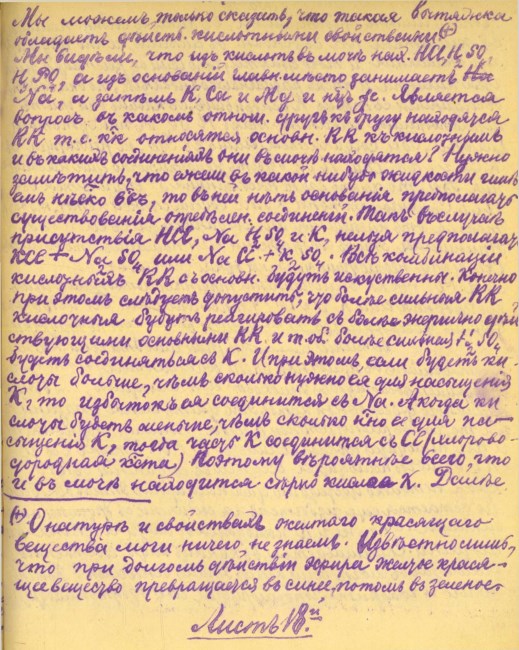 Мы можемъ только сказать, что такая вытяжка
обладаетъ свойств. кислотными свойствами (+)
Мы видѣли, что изъ кислотъ въ мочѣ нах. HCl, H₂SO₄
H₃PO₄, а изъ основаній главн. мѣсто занимаетъ
Na, а затѣмъ K, Ca и Mg и
вопросъ въ какомъ относ. другъ къ другу находятся
RR т.е. кк относятся основн. RR къ кислотнымъ
и въ какихъ соединеніяхъ они въ мочѣ находятся? Нужно
замѣтить, что ежели въ какой нибудь жидкости
нѣско то въ ней нѣтъ основанія предполагать
существованія опредѣлен. соединеній. Такъ въ случаѣ
присутствія HCl, Na H₂SO₄ и K, нельзя предполагать
KCl + Na₂SO₄ или NaCl + K₂SO₄. Всѣ комбинаціи
кислотныхъ RR съ основн. будутъ искуственны. Конечно
при этомъ слѣдуетъ допустить, что болѣе сильныя RR
кислотныя будутъ реагировать съ болѣе энергично дѣй
ствующими основными RR и т.об. болѣе сильная H₂SO₄
будетъ соединяться съ K. И при этомъ, если будетъ ки-
слоты больше, чѣмъ сколько нужно ея для насыщенія
K, то избытокъ ея соединится съ Na. А когда ки
слоты будетъ меньше, чѣмъ сколько нжно ея для на-
сыщенія K, тогда часть K соединится съ Cl (хлорово-
дородная кта) Поэтому вѣроятнѣе всего, что
и въ мочѣ находится сѣрно K. Далѣе
(+) О натурѣ и свойствахъ желтаго красящаго
вещества мочи ничего не знаемъ. Извѣстно лишь,
что при долгомъ дѣйствіи эфира желт. крася-
щее вещество превращается въ синее, потомъ въ зеленое.
Листъ 18.й